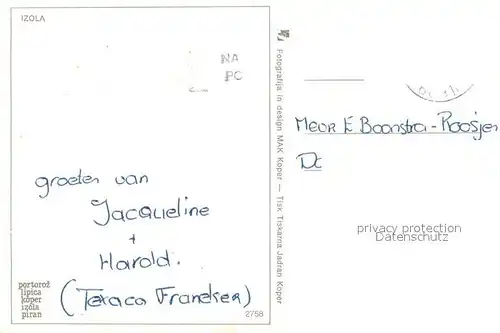 IZOLA
NA
PC
groeten van
Jacqueline
+
Harold.
(Texaco Franeker)
portorož
lipica
koper
izola
piran
2758
Fotografija in design MAK Koper — Tisk Tiskarna Jadran Koper
Mevr E Boonstra-Roosjen
privacy protection
Datenschutz